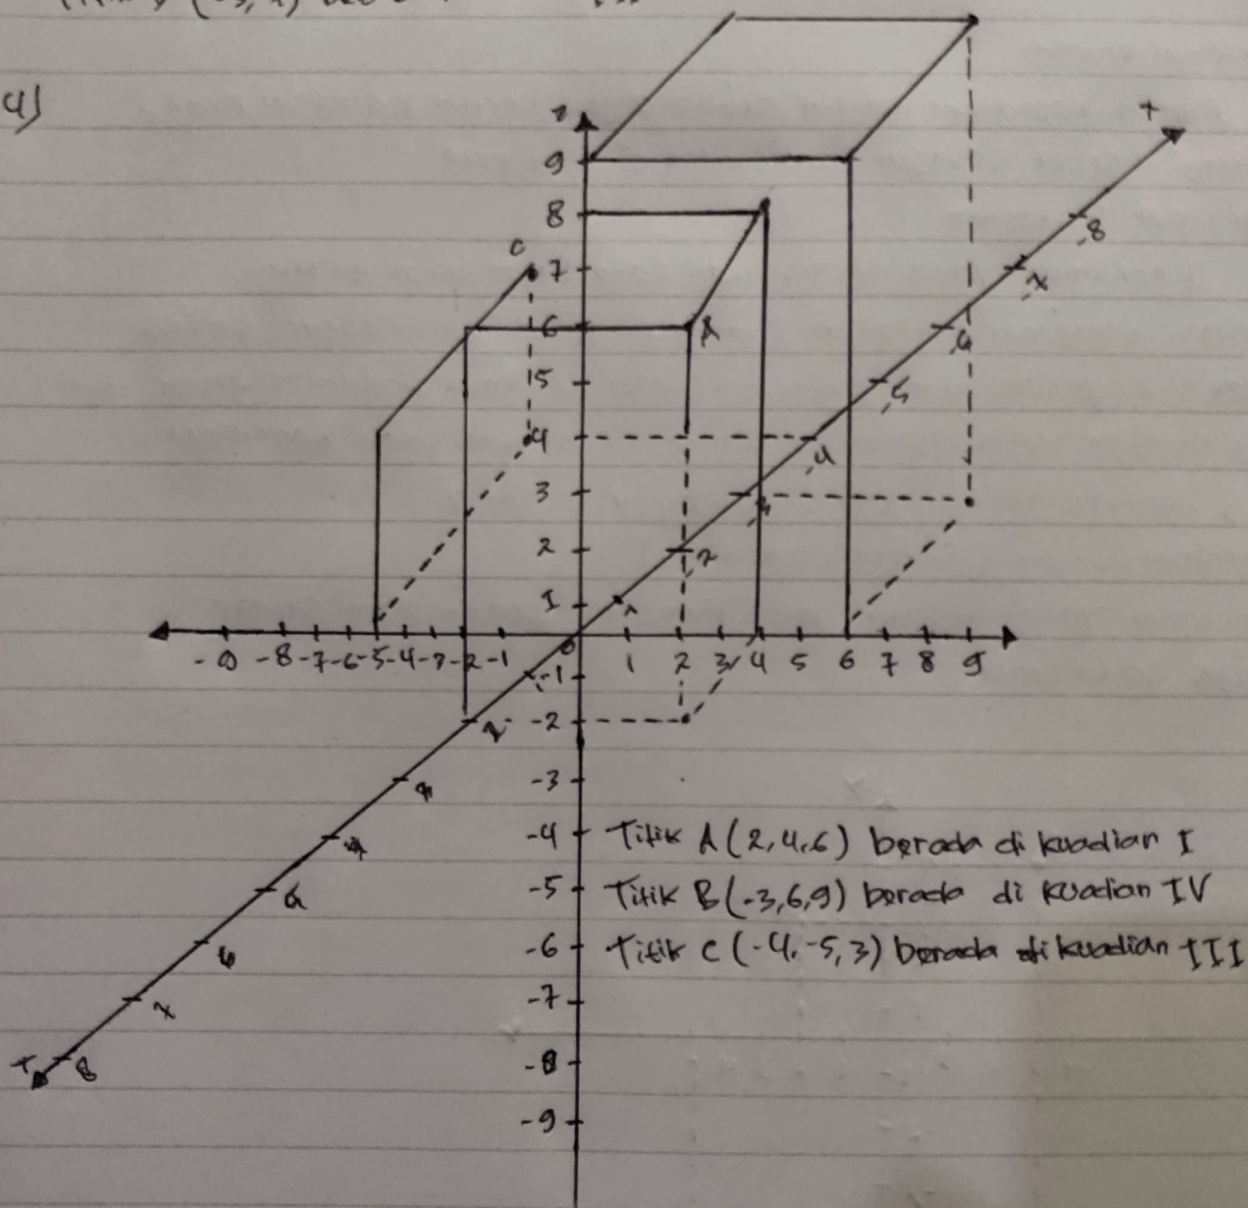 4)
9
8
C
7
6
A
15
4
3
2
1
-8
-7
-6
-5
-4
-3
-2
-8 -7 -6 -5 -4 -3 -2 -1 0 1 2 3 4 5 6 7 8 9
-1
2 -2
-3
-4 Titik A (2,4,6) berada di kuadian I
-5 Titik B (-3,6,9) berada di kuadian IV
-6 Titik C (-4,-5,3) berada di kuadian III
6
-7
7
-8
8
-9